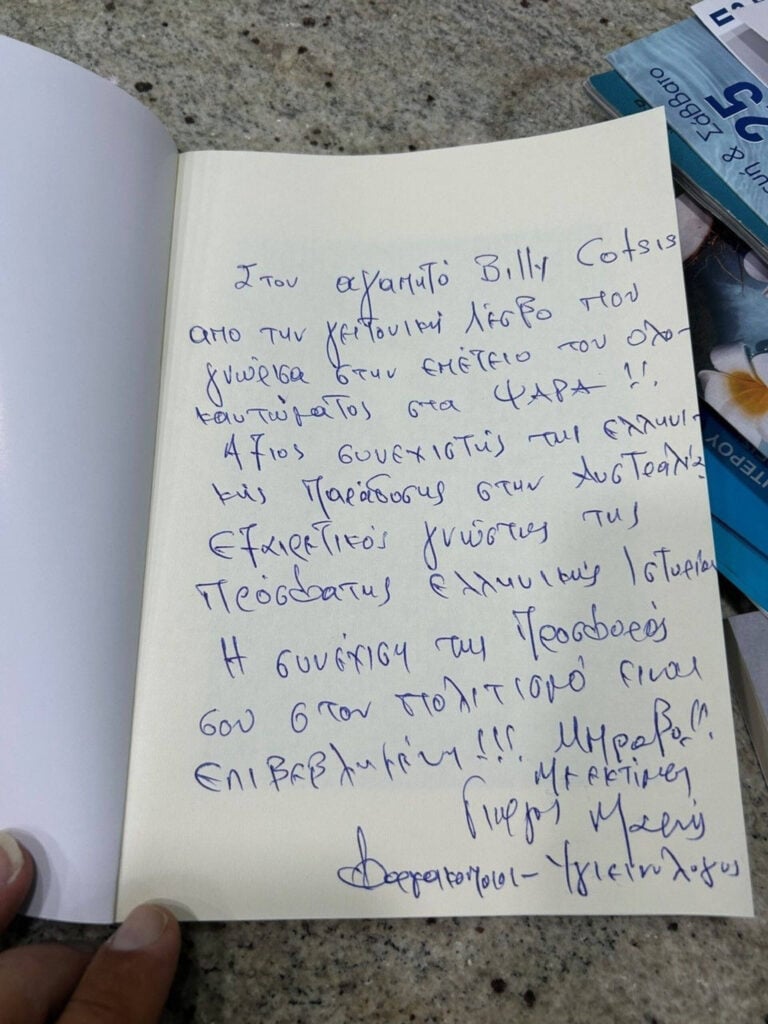 Στον αγαπητό Billy Cotsis
απο την γειτονική Λέσβο που
γνώρισα στην επέτειο του ολο-
καυτώματος στα ΨΑΡΑ !!
Αξιος συνεχιστής της ελληνι-
κής Παράδοσης στην Αυστραλία
εξαιρετικός γνώστης της
πρόσφατης ελληνικής Ιστορίας
Η συνέχιση της Προσφοράς
σου στον πολιτισμό είναι
επιβεβλημένη !!! Μπραβο!!
Με εκτίμηση
Γιώργος
Φαρμακοποιος - Υγιεινολογος
& Σάββατο
25
ΙΤΕΡΟΥ